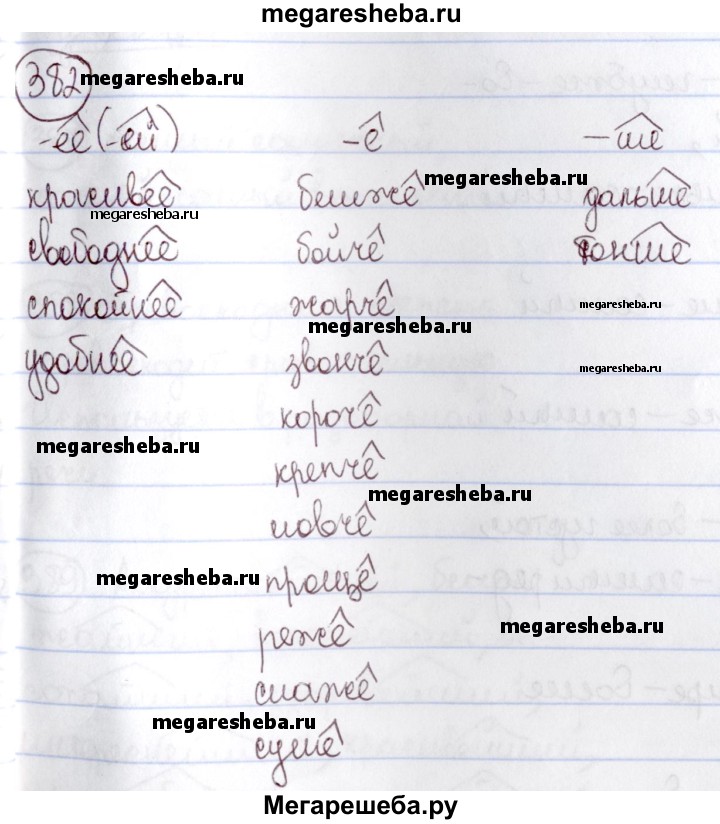 megaresheba.ru
382 megaresheba.ru
-ее (-ей) -е -ше
красивее ближе megaresheba.ru дальше
megaresheba.ru
свободнее бойче тоньше
спокойнее жарче megaresheba.ru
megaresheba.ru
удобнее звонче megaresheba.ru
короче
megaresheba.ru
крепче
megaresheba.ru
ловче
megaresheba.ru проще
реже megaresheba.ru
слаже
megaresheba.ru
суше
Мегарешеба.ру